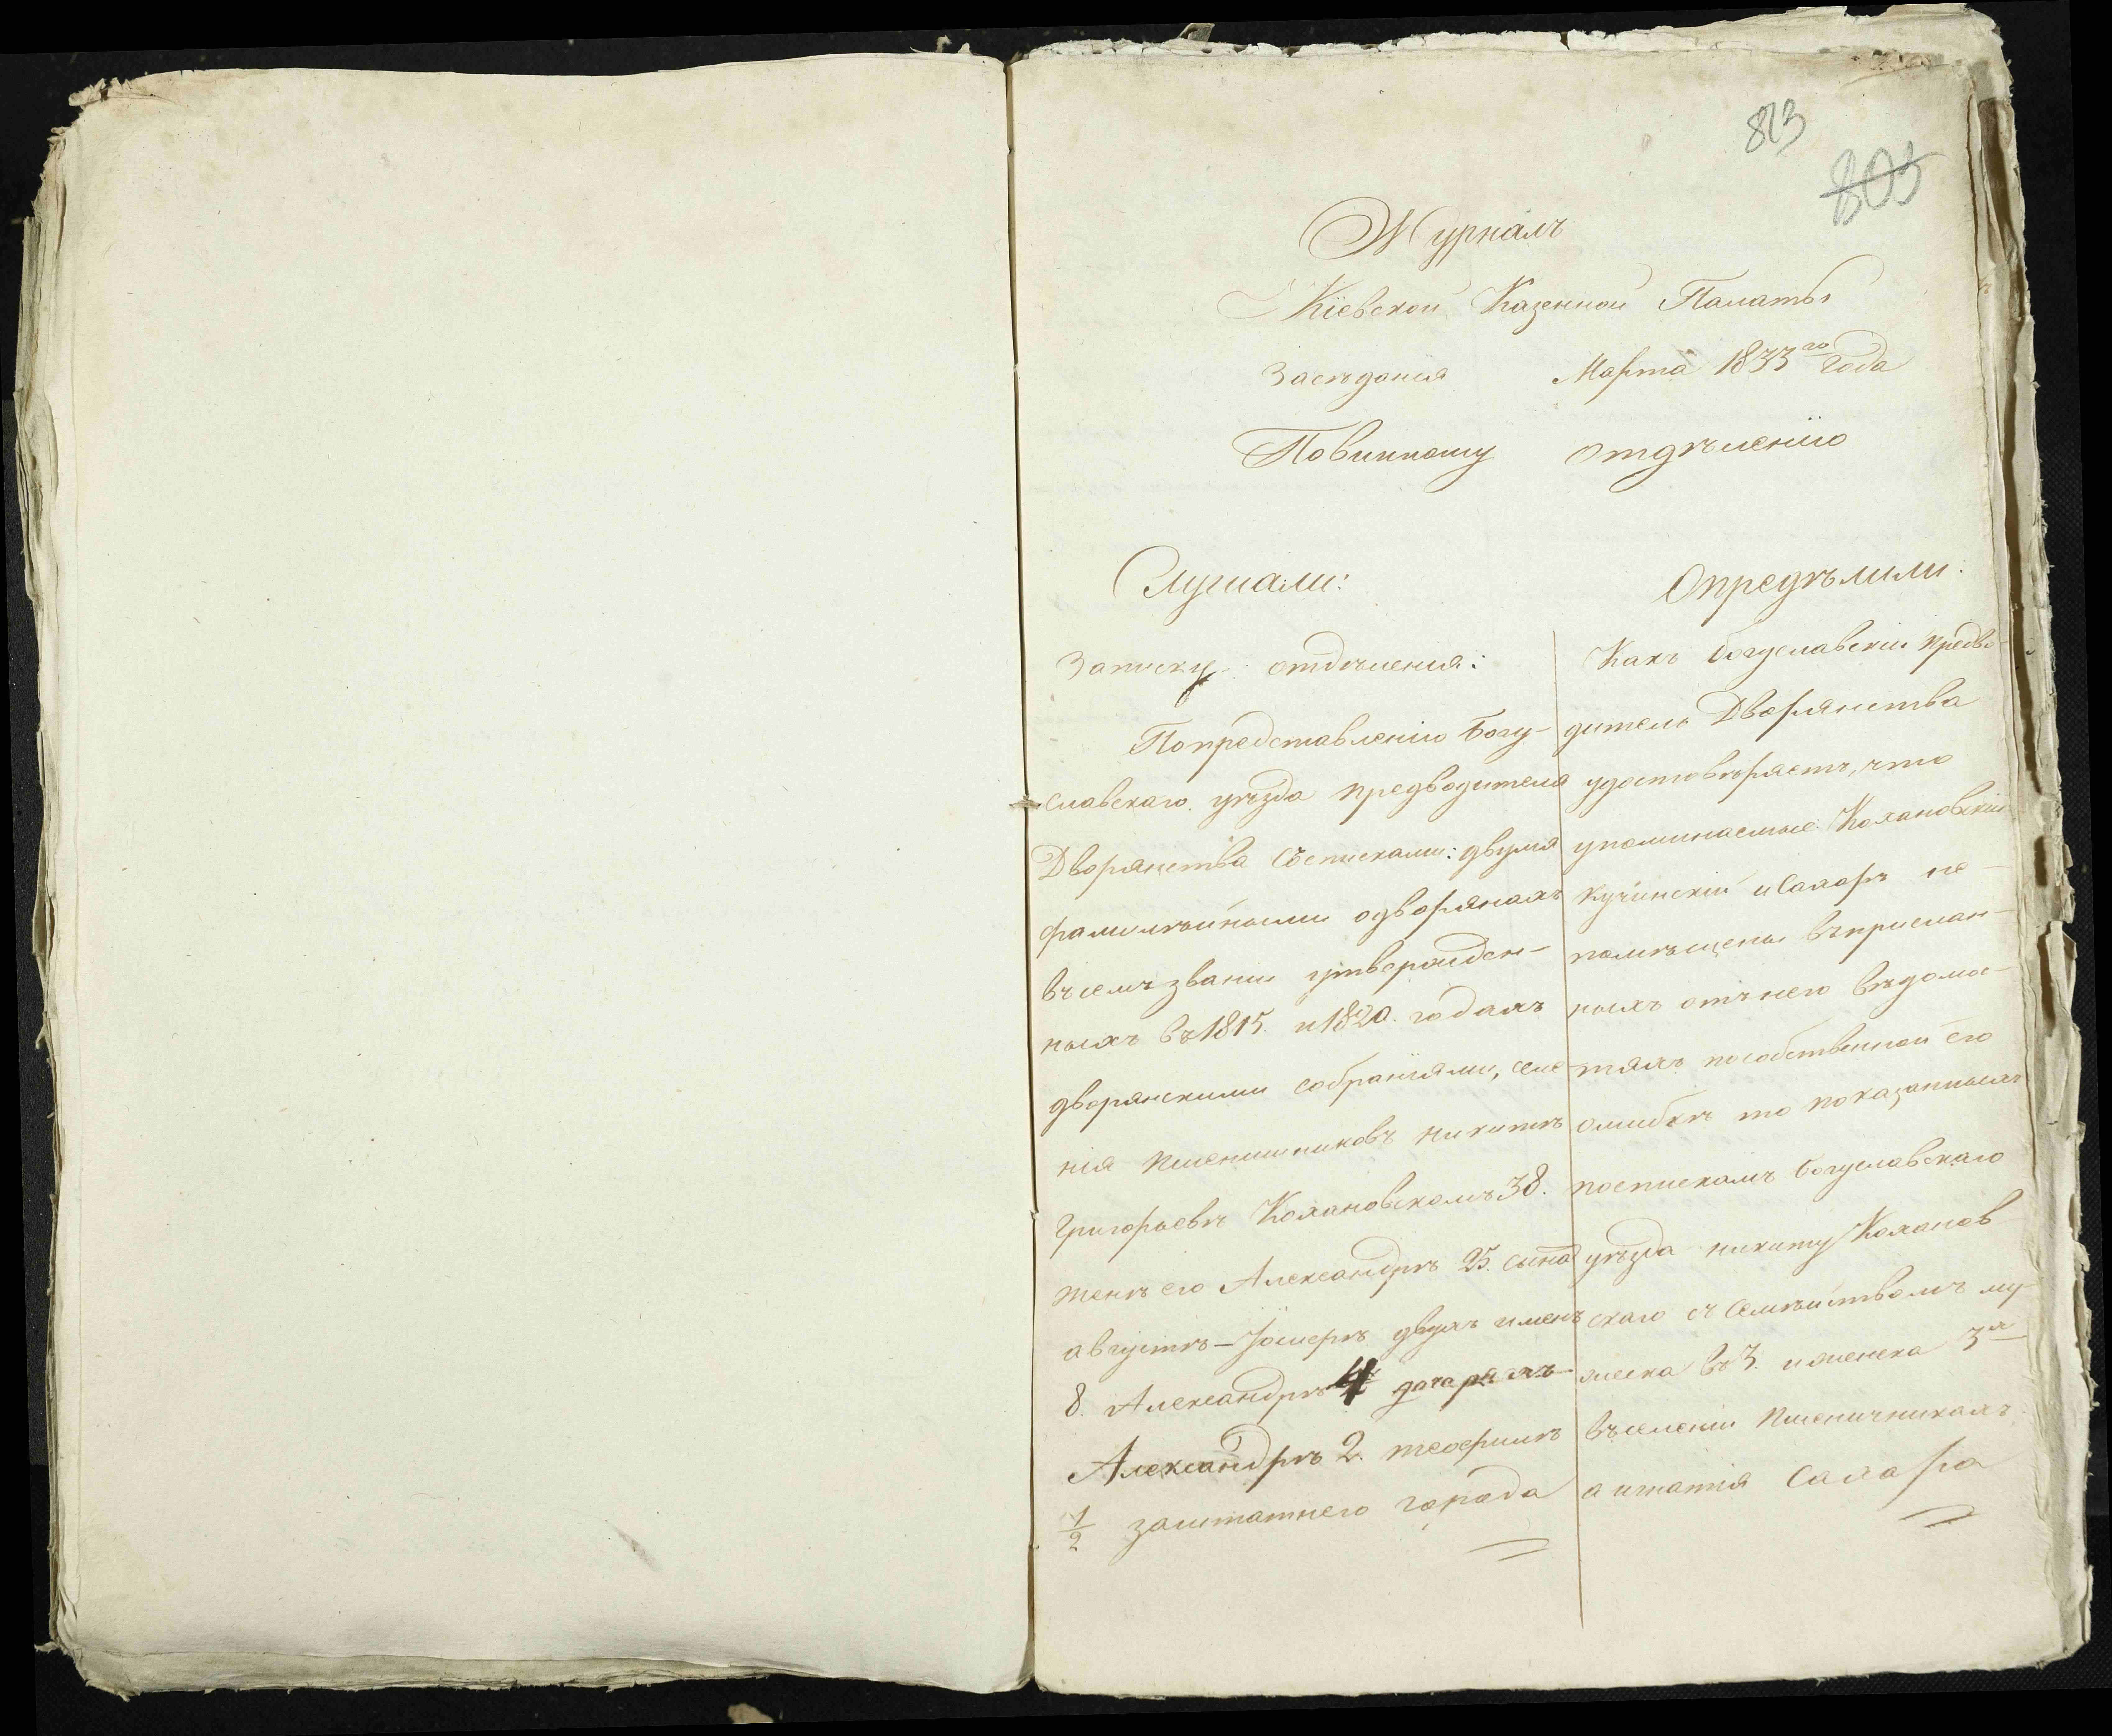 813
803
Журналъ
Кіевской Казенной Палаты
Заседания Марта 1833го года
Повинному отдѣленію
Слушали:
Записку отделения:
Попредставленію Богу-
славскаго уѣзда предводителя
Дворянства Съсписками: двумя
фамилѣйными одворянахъ
всемъ звании утвержден-
ныхъ въ 1815. и 1820. годахъ
дворянскими собраніями, селе-
нія Пшенишниковъ никитѣ
Григорьевѣ Кохановскомъ 38.
женѣ его Александрѣ 25. сына
августѣ-Юзыерѣ двухъ именъ
8. Александрѣ 4 дочеряхъ
Александрѣ 2. теофилѣ
1/2 заштатнего города
Опредѣлили:
Какъ богуславскій предво-
дитель Дворянства
удостовѣряетъ, что
упоминаемые Кохановскій
Кучинскій и Сахаръ не-
помѣщены въприслан-
ныхъ отънего вѣдомос-
тяхъ пособственной его
ошибкѣ то показанныхъ
посписькамъ богуславскаго
уѣзда никиту Коханов
скаго съ Семѣйствомъ му-
жеска въ 3. иженска 3х
въселеніи Пшеничникахъ
а игнатія Сахара